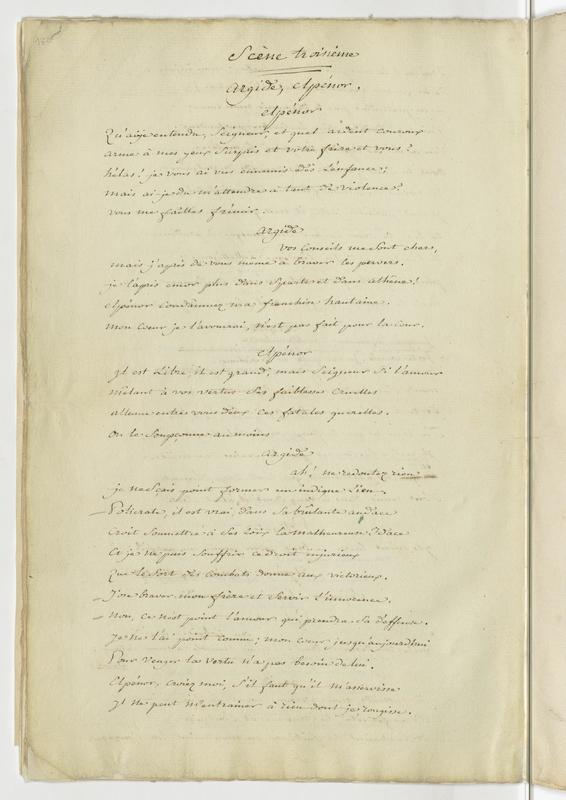 Scène troisième
argide, elpénor.
elpénor
Qu'aije entendu, Seigneur, et quel ardent couroux
arme à mes yeux Surpris et votre frère et vous?
hélas! je vous ai vus ennemis dès L'enfance;
mais ai-je du m'attendre à tant de violence?
vous me faittes frémir.
argide
vos conseils me sont chers,
mais j'apris de vous même à braver les pervers.
je l'apris encor plus dans Sparte et dans athène!
elpénor condamnez ma franchise hautaine.
mon coeur je l'avourai, n'est pas fait pour la cour.
elpénor
jl est Libre, il est grand, mais Seigneur Si l'amour
mêlant à vos vertus Ses faiblesses cruelles
allume entre vous deux ces fatales querelles.
on le Soupçonne au moins
argide
ah! ne redoutez rien
je ne Sçais point former un indigne Lien
Policrate, il est vrai, dans sa brûlante audace
Croit Soumettre à Ses Loix la malheureuse Idace
Et je ne puis Souffrir ce droit injurieux
Que le Sort des combats donne aux victorieux.
J'ose braver mon frère et Servir l'innocence.
non, ce n'est point l'amour qui prendra Sa deffense.
Je ne l'ai point connu; mon coeur jusqu'aujourdhui
Pour venger la vertu n'a pas besoin de lui.
Elpénor, croiez moi, S'il faut qu'il m'asservisse
Jl ne peut m'entrainer à rien dont je rougisse.